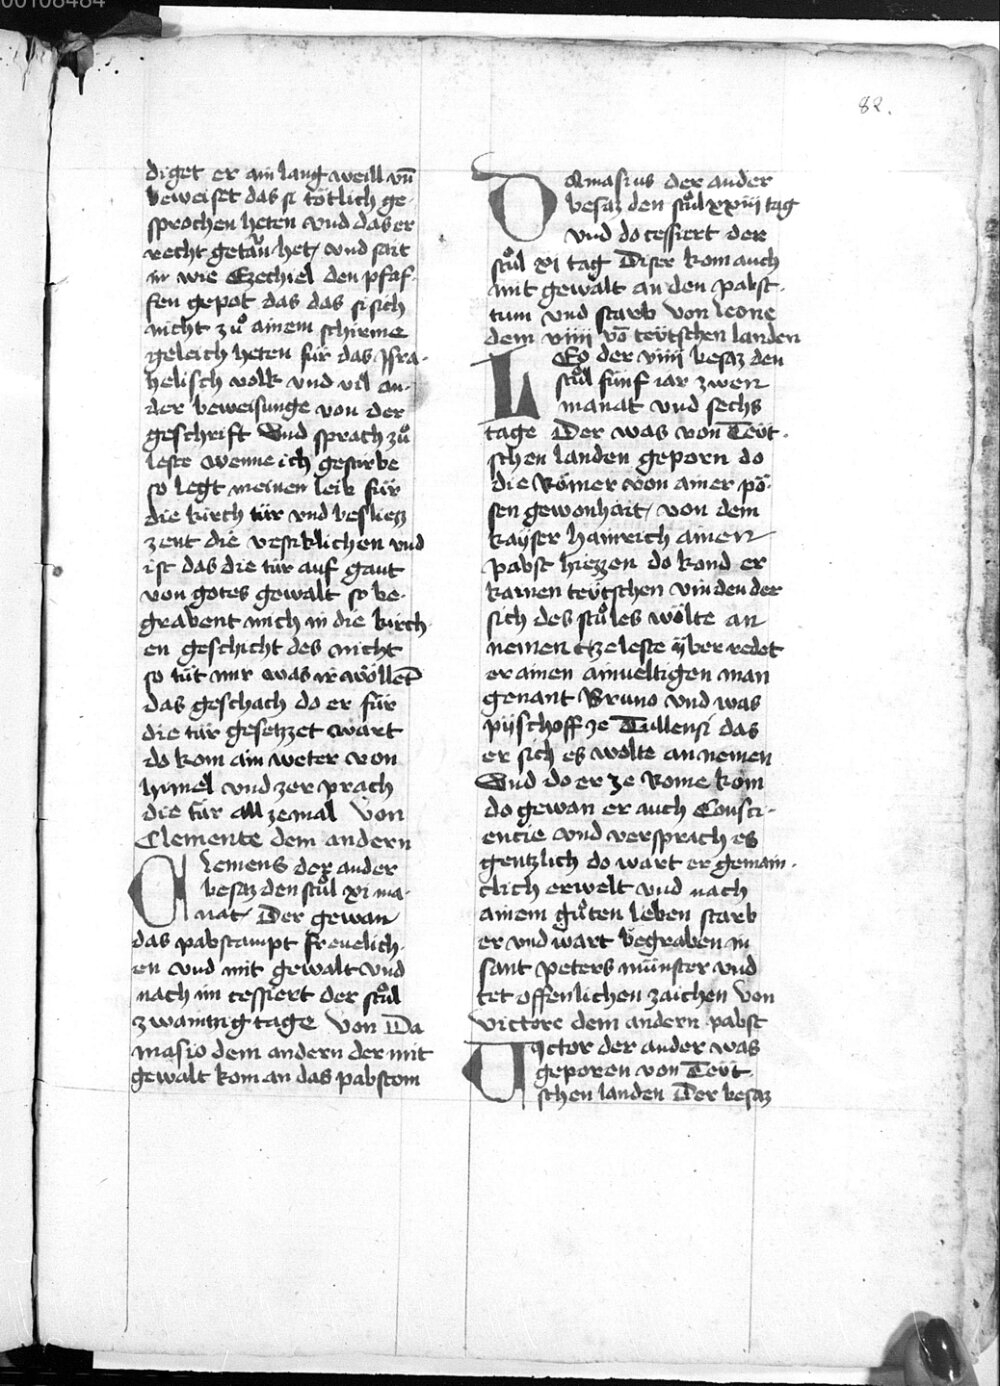 00108484
82.
diget er ain lang weill vn̄
beweiset das si tötlich ge-
sprochen heten vnd das er
recht getän het / vnd sait
in wie Ezechiel den pfaf-
fen gepot das das si sich
nicht zuͦ ainem schirme
geleich heten für das Jsra-
helisch volk vnd vil an-
der beweisunge von der
geschrift Vnd sprach zuͦ
leste wenne ich gestirbe
so legt meinen leib für
die kirch tür vnd besliezz
zent die vestiklichen vnd
ist das die tür auf gaut
von gotes gewalt so be-
grabent mich in die kirch
en geschicht des nicht
so tüt mir was ir wöllent
das geschach do er für
die tür gesetzzet wart
do kom ain weter von
hymel vnd zer prach
die tür all zemal Von
Clemente dem andern
Clemens der ander
besaz den stuͦl xi ma-
nat / Der gewan
das pabstampt freuelich-
en vnd mit gewalt vnd
nach im cessiert der stuͦl
zwaintzig tage Von Da
masio dem andern der mit
gewalt kom an das pabstom
Damasius der ander
besaz den stuͦl xxiij tag
vnd do cessiert der
stuͦl xi tag Diser kom auch
mit gewalt an den pabst-
tum vnd starb Von Leone
dem viiij vō teütschen landen
LEo der viiij besaz den
stuͦl fünf iar zwen
manat vnd sechs
tage Der was von Teüt-
schen landen geporn do
die Römer von ainer pö-
sen gewonhait / von dem
kayser hainrich ainen
pabst hiezzen do kond er
kainen teütschen vinden der
sich des stuͦles wölte an
nemen tze leste über redet
er ainen ainueltigen man
genant Bruno vnd was
pyschoff ze Tullensi das
er sich es wolte an nemen
Vnd do er ze Rome kom
do gewan er auch Consci-
encie vnd versprach es
gentzlich do wart er gemain-
clich erwelt vnd nach
ainem guͦten leben starb
er vnd wart begraben in
sant peters münster vnd
tet offenlichen zaichen Von
victore dem andern pabst
Victor der ander was
geporen von Teüt
schen landen Der besaz